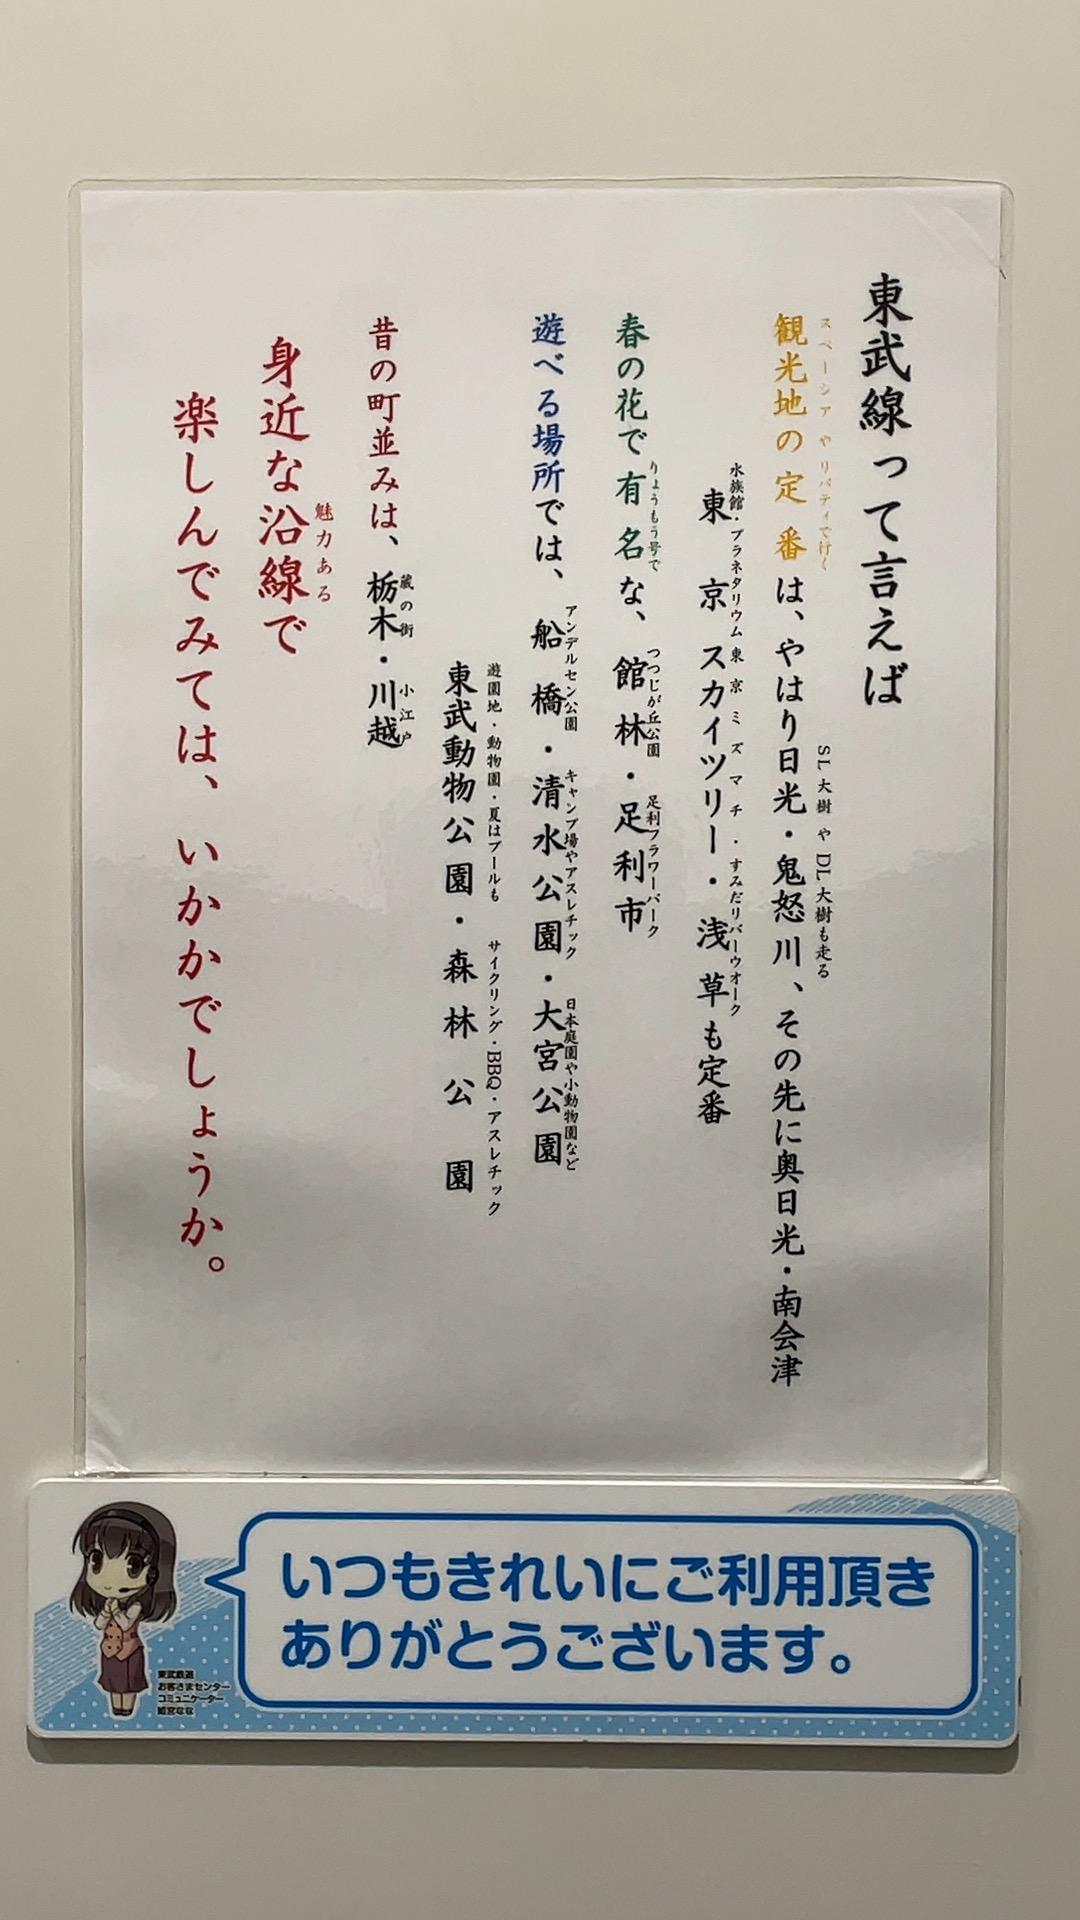 東武線って言えば
スペーシアやリバティで行く
観光地の定番は、やはり日光・鬼怒川、その先に奥日光・南会津
SL大樹やDL大樹も走る
水族館・プラネタリウム東京ミズマチ・すみだリバーウオーク
東京スカイツリー・浅草も定番
りょうもう号で
春の花で有名な、館林・足利市
つつじが丘公園 足利フラワーパーク
遊べる場所では、船橋・清水公園・大宮公園
アンデルセン公園 キャンプ場やアスレチック 日本庭園や小動物園など
遊園地・動物園・夏はプールも サイクリング・BBQ・アスレチック
東武動物公園・森林公園
昔の町並みは、栃木・川越
蔵の街 小江戸
魅力ある
身近な沿線で
楽しんでみては、いかかでしょうか。
いつもきれいにご利用頂き
ありがとうございます。
東武鉄道
お客さまセンター
コミュニケーター
姫宮なな